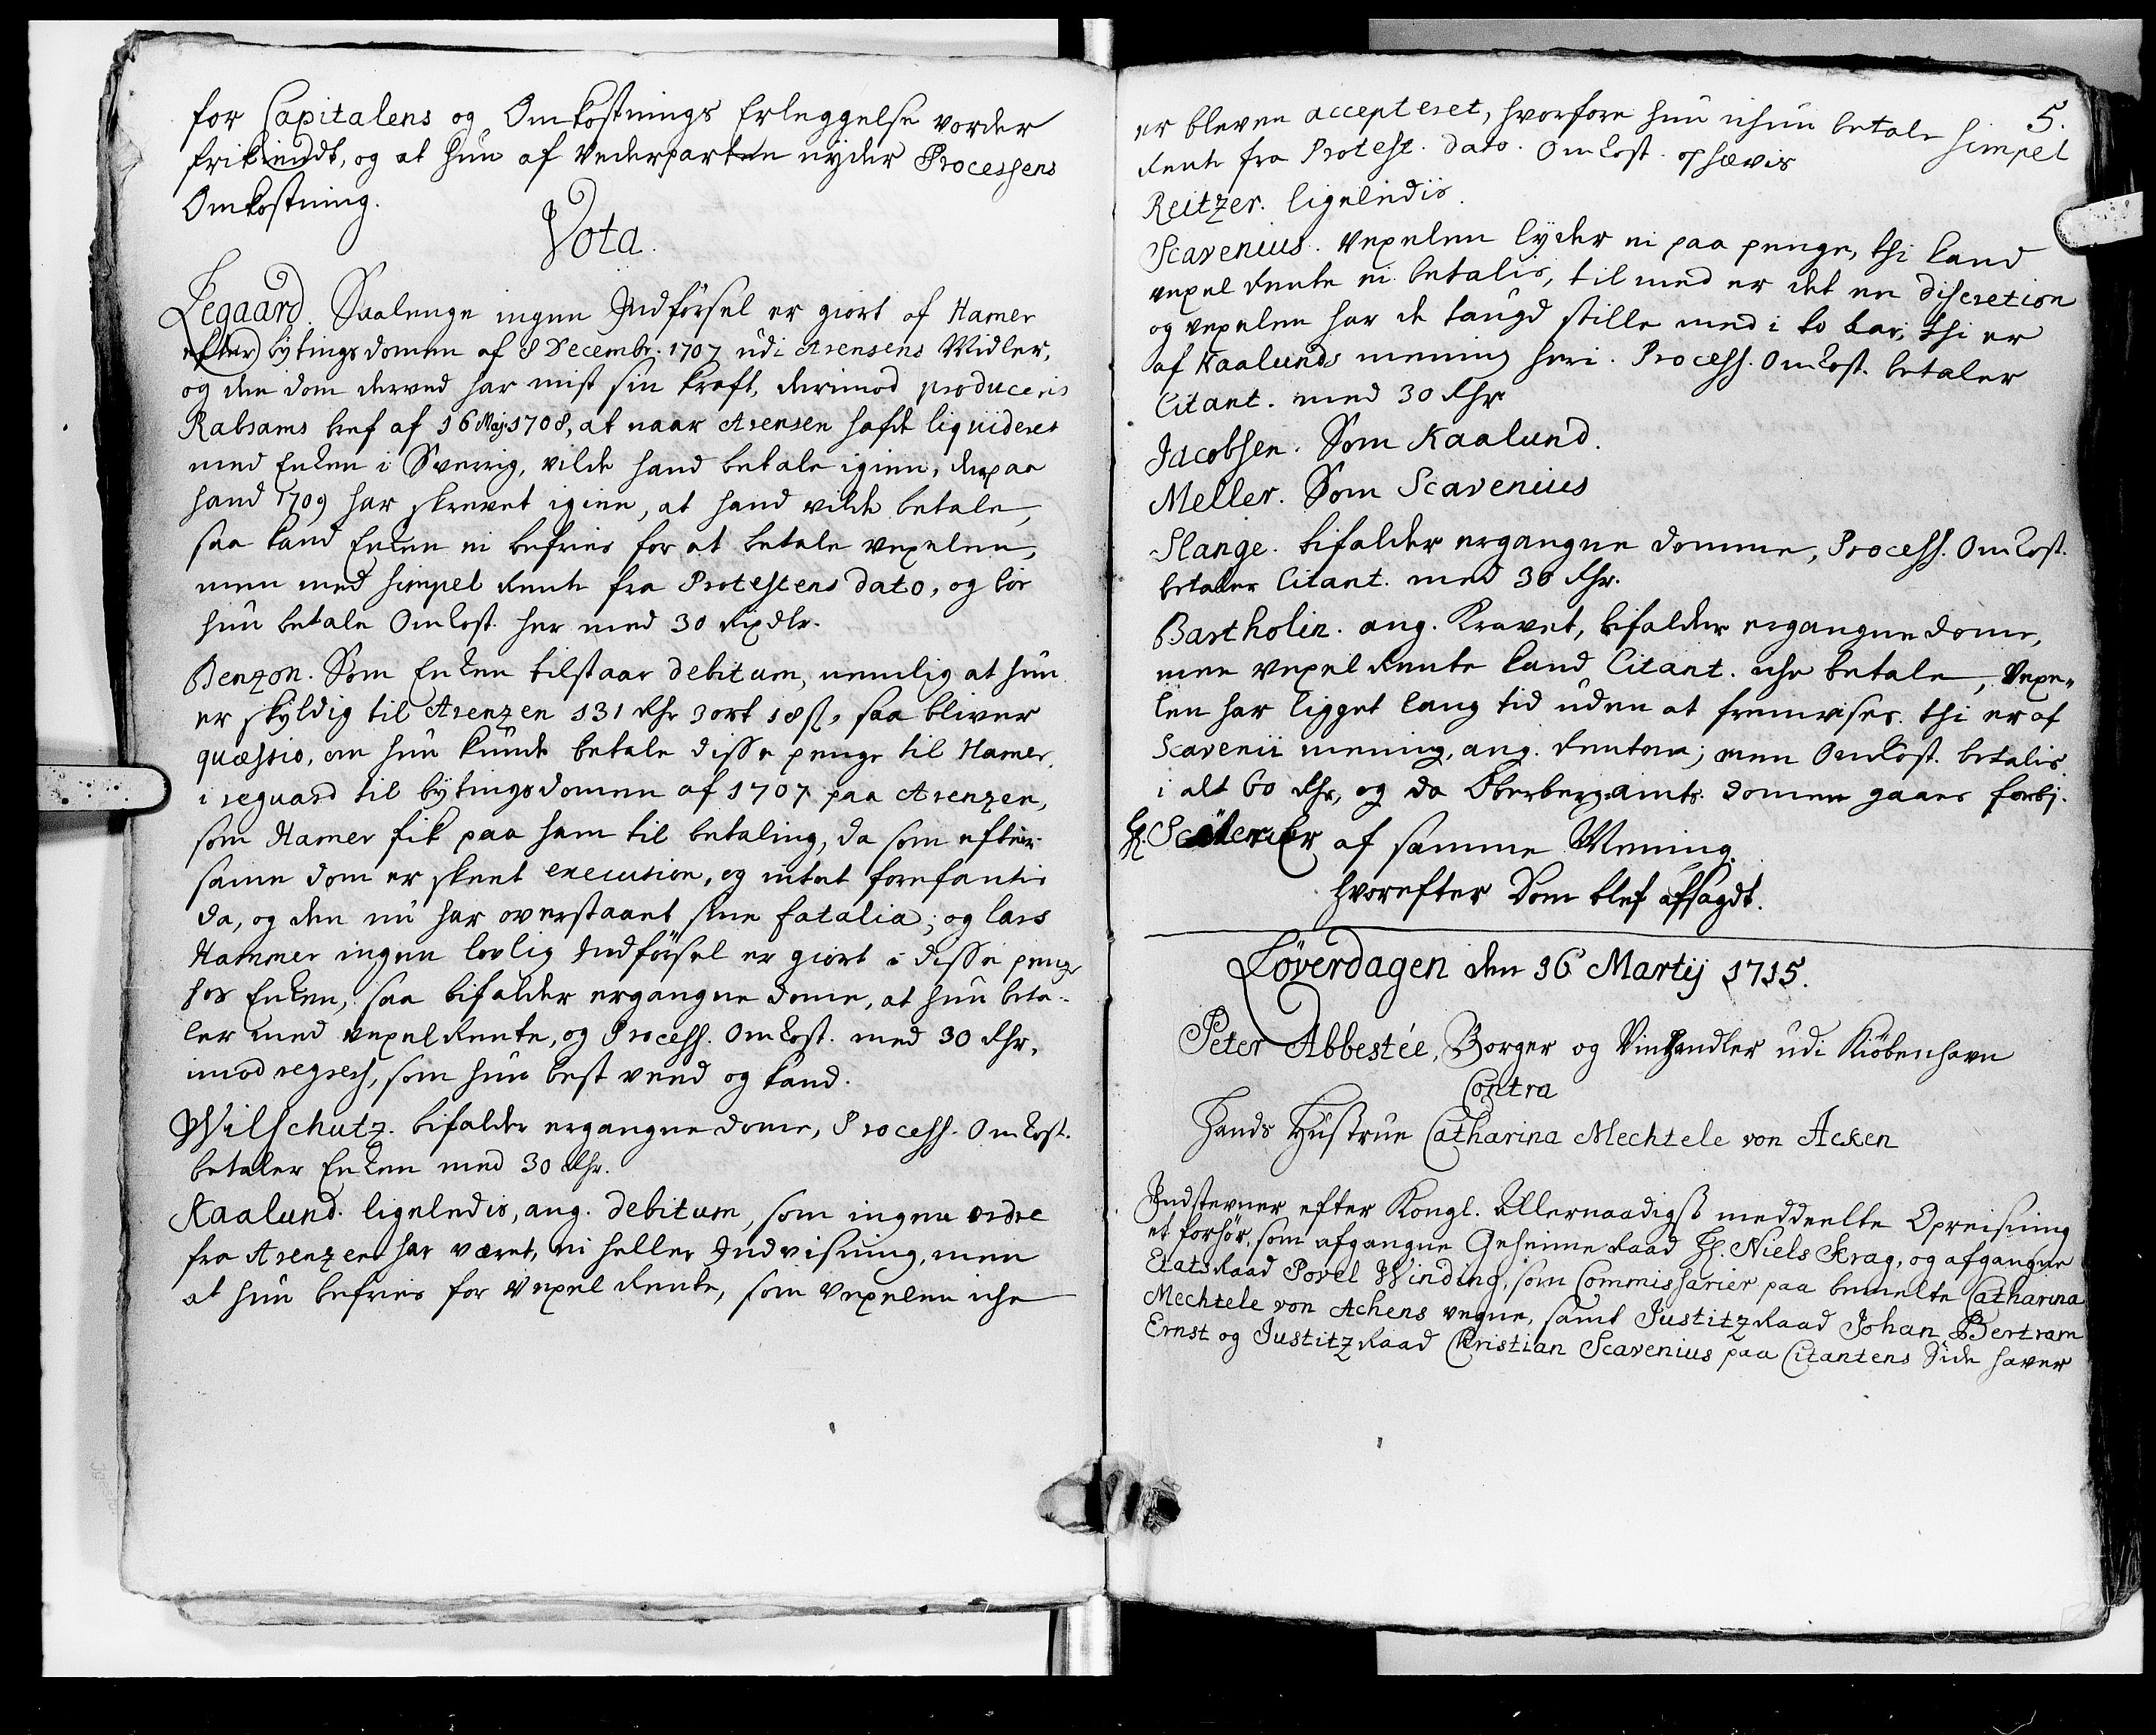 for Capitalens og Omkostnings Erleggelse vorder
frikiendt, og at hun af Vederparten nyder Processens
Omkostning.
Vota.
Legaard. Saalenge ingen Indførsel er giort af Hamer
efter bytingsdomen af 8 Decembr. 1707 udi Arensens Midler,
og den dom derved har mist sin kraft, derimod produceris
Rabsams bref af 16 Maj 1708, at naar Arensen hafde liquideret
med Enken i Sverrig, vilde hand betale igien, derpaa
hand 1709 har skrevet igien, at hand vilde betale,
saa kand Enken ei befries for at betale vexelen,
men med simpel Rente fra Protestens dato, og bør
hun betale Omkost. her med 30 Rixdlr.
Benzon. Som Enken tilstaar debitum, nemlig at hun
er skyldig til Arenzen 131 Rhr 3 ort 18 ß, saa bliver
quæstio, om hun kunde betale disse penge til Hamer.
i reguard til bytingsdomen af 1707 paa Arenzen,
som Hamer fik paa ham til betaling, da som efter
same dom er skeet execution, og intet forefantis
da, og den nu har overstaaet sine fatalia; og lars
Hammer ingen lovlig Indførsel er giort i disse penge
hos Enken, saa bifalder ergangne dome, at hun beta-
ler med vexel Rente, og Process. Omkost. med 30 Rhr.
imod regress, som hun best veed og kand.
Wilschutz. bifalder ergangne dome, Process. Omkost.
betaler Enken med 30 Rhr.
Kaalund. ligeledis, ang. debitum, som ingen ordre
fra Arenzen har været, ei heller Indvisning, men
at hun befries for Vexel Rente, som Vexelen iche
5.
er bleven accepteret, hvorfore hun ichun betale simpel
Rente fra Protest. dato. Omkost. ophævis
Reitzer. ligeledis.
Scavenius. Vexelen lyder ei paa penge, thi kand
vexel Rente ei betalis, til med er det en discretion
og vexelen har de taugd stille med i to aar, thi er
af Kaalunds mening heri. Process. Omkost. betaler
Citant. med 30 Rhr
Jacobsen. Som Kaalund.
Meller. Som Scavenius
Slange. bifalder ergangne domme, Process. Omkost.
betaler Citant. med 30 Rhr.
Bartholin. ang. Kravet, bifalder ergangne dome,
men vexel Rente kand Citant. iche betale, Vexe-
len har ligget lang tid uden at fremvises. thi er af
Scavenii mening, ang. Renten; men Omkost. betalis
i alt 60 Rhr, og da Oberbergamts domen gaaes forbj.
af samme Mening.
hvorefter Dom blef afsagdt.
Løverdagen den 16 Martij 1715.
Peter Abbestée, Borger og Vinhandler udi Kiøbenhavn
Contra
Hands Hustrue Catharina Mechtele von Acken
Indstevner efter Kongl. Allernaadigst meddeelte Opreisning
et forhør, som afgangne Geheime Raad Hr. Niels Krag, og afgangne
Etats Raad Povel Winding, som Commissarier paa bemelte Catharina
Mechtele von Achens vegne, samt Justitz Raad Johan Bertram
Ernst og Justitz Raad Christian Scavenius paa Citantens Side haver